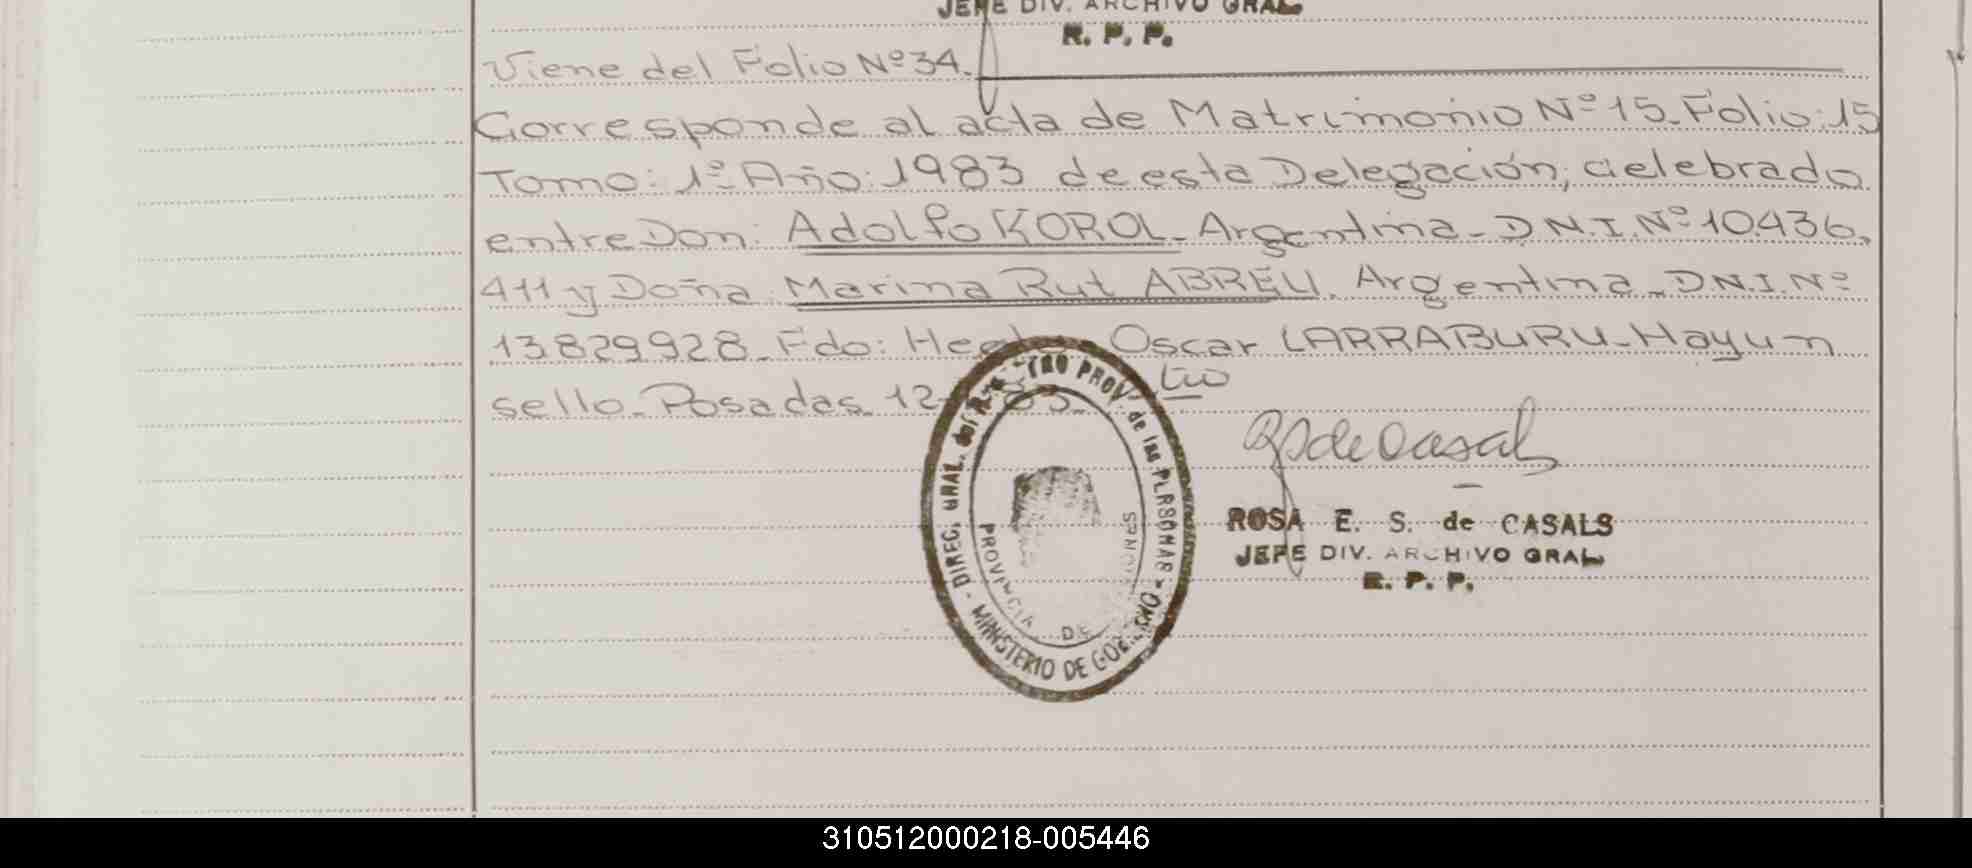 JEFE DIV. ARCHIVO GRAL
R. P. P.
Viene del Folio Nº 34.
Corresponde al acta de Matrimonio Nº 15. Folio: 15
Tomo: 1º Año: 1983 de esta Delegación; celebrado
entre Don: Adolfo KOROL. Argentina. D.N.I. Nº 10.436.
411 y Doña Marina Rut ABREU. Argentina. D.N.I. Nº
13829928. Fdo: Oscar LARRABURU. Hay un
sello. Posadas. 12 83.
DIREC. GRAL. del PROV. de las PERSONAS - MINISTERIO DE
PROVINCIA DE MISIONES
ROSA E. S. de CASALS
JEFE DIV. ARCHIVO GRAL
R. P. P.
310512000218-005446